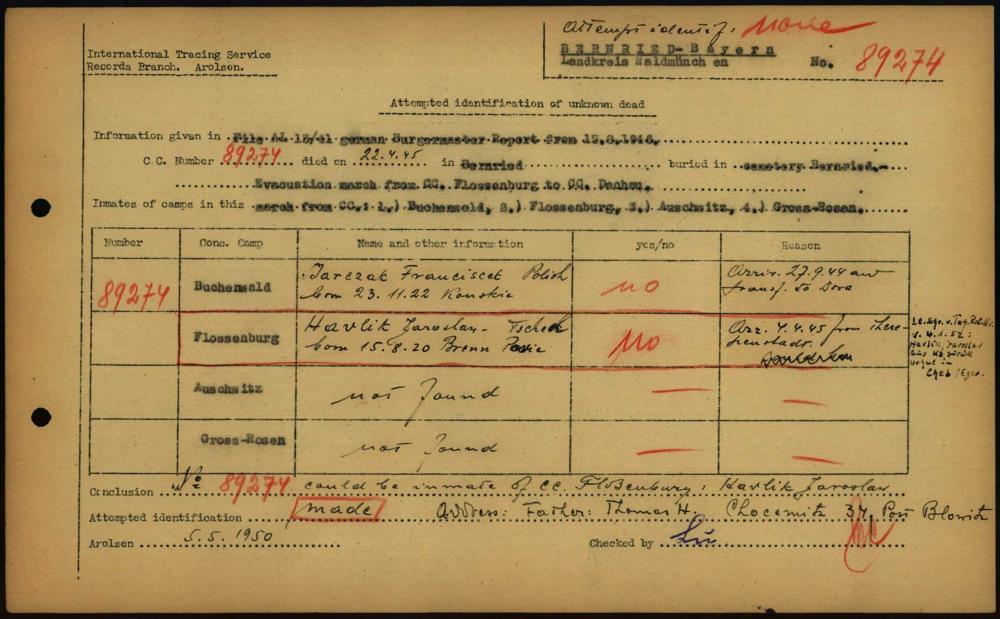 Attempts identif: None
International Tracing Service
Records Branch. Arolsen.
BERNRIED-Bayern
Landkreis Waldmünchen
No. 89274
Attempted identification of unknown dead
Information given in File AL 13/41 german Burgermaster Report from 15.8.1946.
C.C. Number 89274 died on 22.4.45 in Bernried buried in cemetery Bernried.-
Evacuation march from CC. Flossenburg to CC. Dachau.
Inmates of camps in this march from CC.: 1.) Buchenwald, 2.) Flossenburg, 3.) Auschwitz, 4.) Gross-Rosen.
Number Conc. Camp Name and other information yes/no Reason
89274 Buchenwald Jarczak Franciscek Polish
born 23.11.22 Konskie
no
Arriv. 27.9.44 and
transf. to Dora
Flossenburg Havlik Jaroslav - Tschech
born 15.8.20 Brenn
No
Arr. 7.4.45 from There-
sienstadt.
v. 4.1.52:
Havlik, Jaroslav
aus KZ zurück
wohnt in
Cheb/Eger.
Auschwitz not found
Gross-Rosen not found
Conclusion No 89274 could be inmate of CC. Floßenburg: Havlik Jaroslav
Attempted identification made Address: Father: Thomas H. Chocemitz 37, Post Blowitz
Arolsen 5.5.1950 Checked by